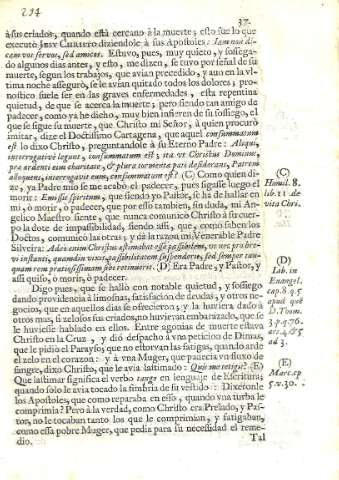 294
37.
à sus criados, quando està cercano à la muerte; esto fue lo que
executò JESV CHRISTO diziendole à sus Apostoles: Iam non di-
cam vos servos, sed amicos. Estuvo, pues, muy quieto, y sossega-
do algunos dias antes, y esto, me dizen, se tuvo por señal de su
muerte, segun los trabajos, que avian precedido, y aun en la vl-
tima noche assegurò, se le avian quitado todos los dolores; pro-
nostico suele ser en las graves enfermedades, esta repentina
quietud, de que se acerca la muerte; pero siendo tan amigo de
padecer, como ya he dicho, muy bien infieren de su sossiego, el
que se sigue su muerte, que Christo mi Señor, à quien procurò
imitar, dize el Doctissimo Cartagena, que aquel consummatum
est lo dixo Christo, preguntandole à su Eterno Padre: Aliqui,
interrogativè legunt, consummatum est; ita vt Christus Dominus,
pra ardenti eum charitate, & plura tormenta pati desiderans, Patrem
alloquens, interrogavit eum, consummatum est? (C) Como quien di-
ze, ya Padre mio se me acabò el padecer, pues sigasse luego el
morir: Emissit spiritum, que siendo yo Pastor, se ha de hallar en
mi, ò morir, ò padecer, que por esso tambien, sin duda, mi An-
gelico Maestro siente, que nunca comunicò Christo à su cuer-
po la dote de impassibilidad, siendo assi, que, como suben los
Doctos, comunicò las otras; y dà la razon mi Venerable Padre
Silveira: Adeò enim Christus estimabat esse passibilem, vt nec pro bre-
vi instanti, quamdiu vixit, passibilitatem suspenderit, sed semper tan-
quam rem pratiosissimam sibi retinuerit. (D) Era Padre, y Pastor, y
assi quiso, ò morir, ò padecer.
Digo pues, que se hallò con notable quietud, y sossego
dando providencia à limosnas, satisfacion de deudas, y otros ne-
gocios, que en aquellos dias se ofrecieron; y la huviera dado à
otros mas, si zelosos sus criados, no huvieran embarazado, que se
le huviesse hablado en ellos. Entre agonias de muerte estava
Christo en la Cruz, y diò despacho à vna peticion de Dimas,
que le pidiò el Parayso; que no estorvan las fatigas, quando arde
el zelo en el corazon: y à vna Muger, que padecia vn fluxo de
sangre, dixo Christo, que le avia lastimado: Quis me tetigit? (E)
Que lastimar significa el verbo tango en lenguaje de Escritura;
quando solo le avia tocado la fimbria de su vestido: Dixeronle
los Apostoles, que como reparaba en esso, quando vna turba le
comprimia? Pero à la verdad, como Christo era Prelado, y Pas-
tor, no le tocaban tanto los que le comprimian, y fatigaban,
como essa pobre Muger, que pedia para su necessidad el reme-
dio.
Tal
(C)
Homil. 8.
lib. 11 de
vita Chri.
(D)
Lib. in
Euangel.
cap. 8. q. 5
apud quē
D. Thom.
3. p. q. 76.
art. 4. & 5
ad 3.
(E)
Marc. cp
5. v. 30.